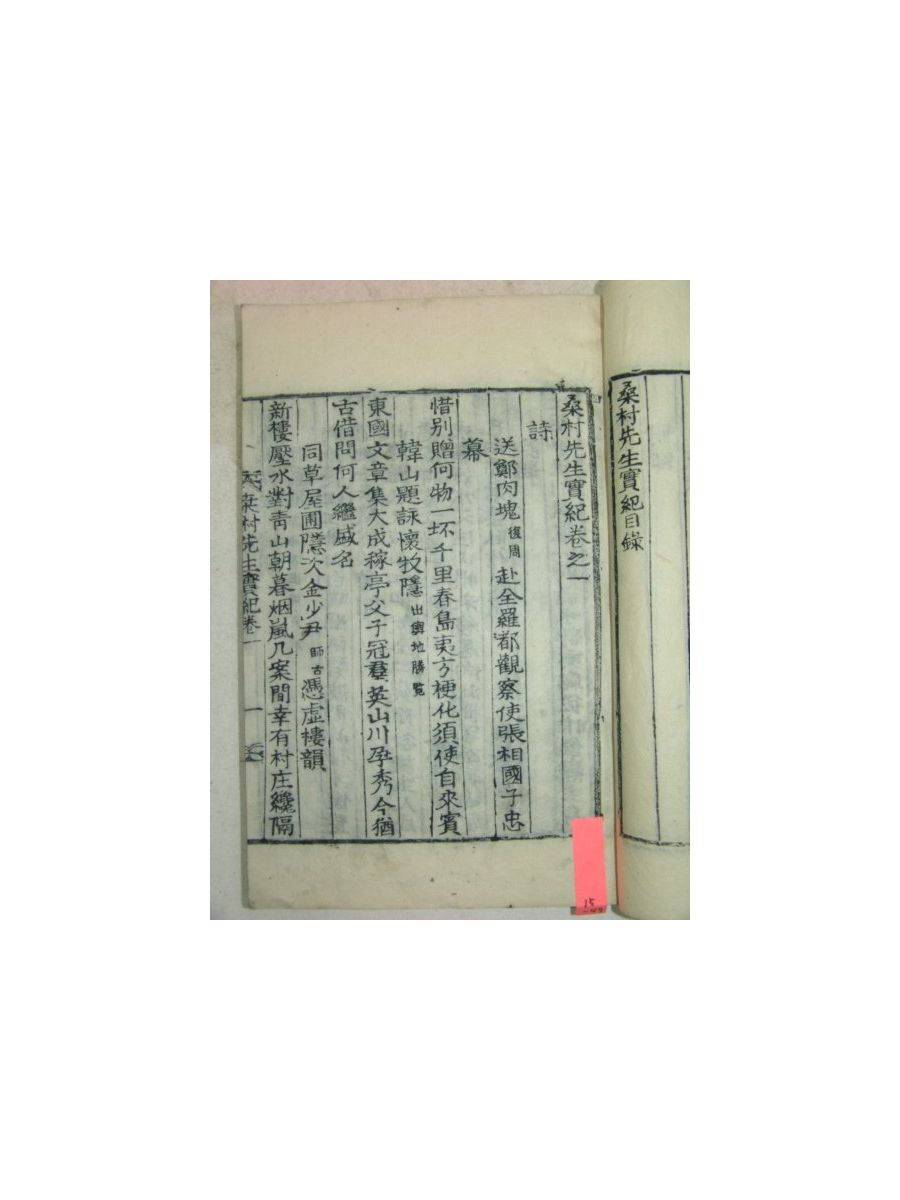 桑村先生實紀目錄
桑村先生實紀卷之一
詩
送鄭肉塊 復周 赴全羅都觀察使張相國子忠
幕
惜别贈何物一坏千里春島夷方梗化須使自來賓
韓山題詠懷牧隱 出輿地勝覧
東國文章集大成稼亭父子冠羣英山川孕秀今猶
古借問何人繼盛名
同草屋圃隱次金少尹 師古 憑虛樓韻
新樓壓水對靑山朝暮烟嵐几案間幸有村庄纔隔
桑村先生實紀卷一 一
15